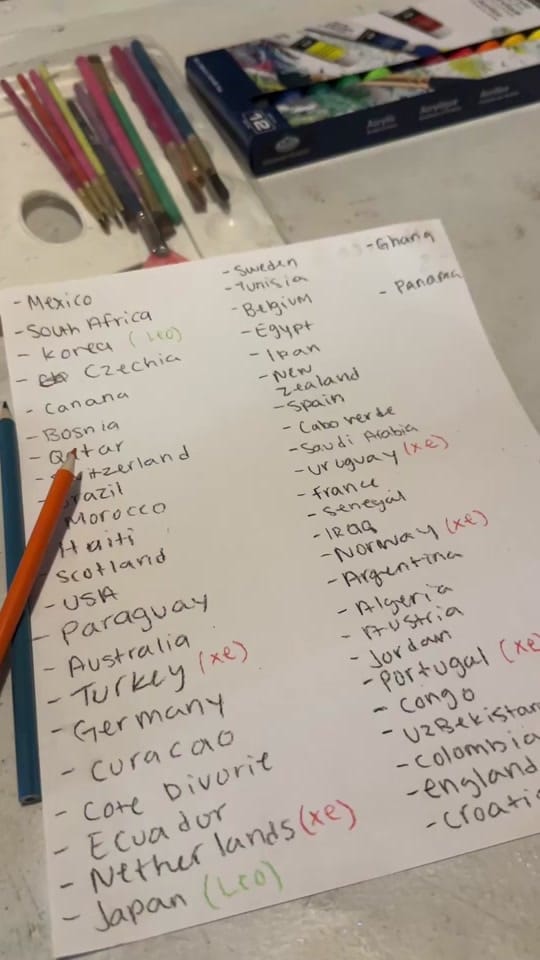 - Mexico
- South Africa
- Korea (Leo)
- Czechia
- Canana
- Bosnia
- Qatar
- Switzerland
Brazil
Morocco
Haiti
- Scotland
- USA
- Paraguay
- Australia
- Turkey (xe)
- Germany
- Curacao
- Cote Divorie
- Ecuador
- Netherlands (xe)
- Japan (Leo)
- Sweden
- Tunisia
- Belgium
- Egypt
- Iran
- New
Zealand
- Spain
- Cabo verde
- Saudi Arabia
- Uruguay (xe)
- France
- Senegal
- IRAQ
- Norway (xe)
- Argentina
- Algeria
- Austria
- Jordan
- Portugal (xe
- Congo
- Uzbekistan
- Colombia
- England
- Croatia
- Ghana
- Panama
12
Acrylic